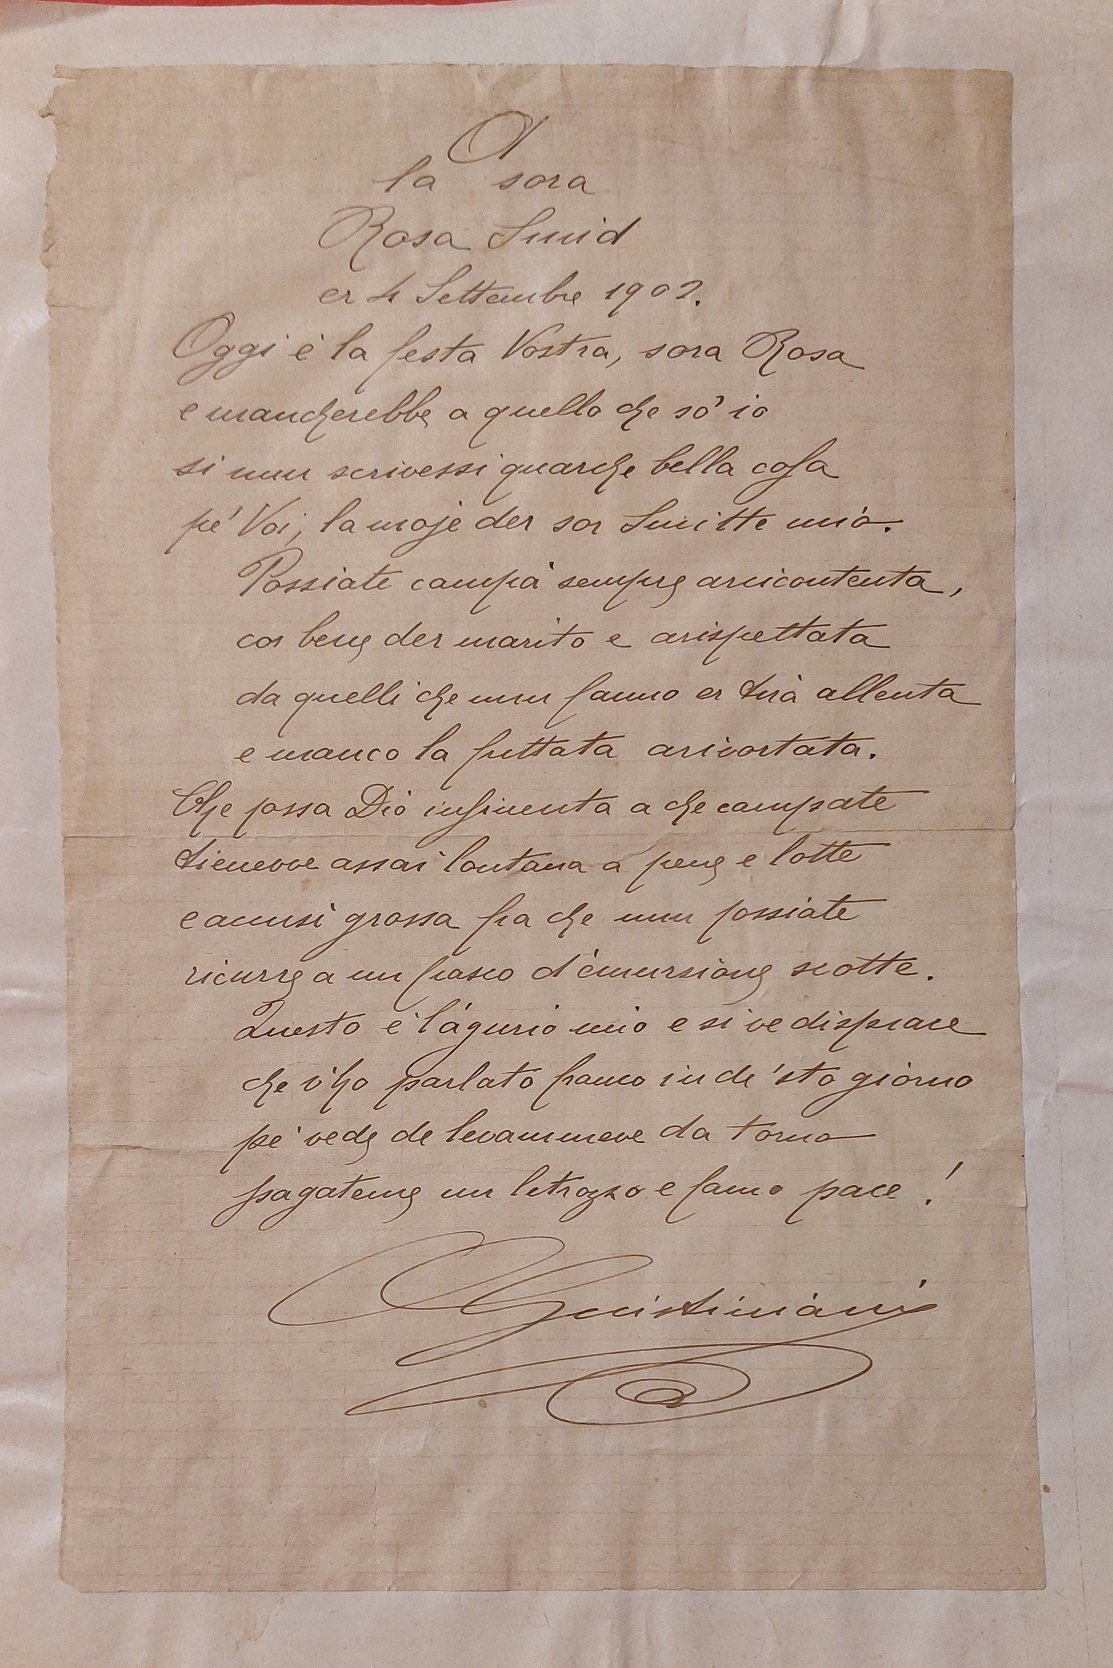 A
la sora
Rosa Smid
er 4 Settembre 1902.
Oggi è la festa Vostra, sora Rosa
e mancherebbe a quello che sò io
si nun scrivessi quarche bella cosa
pe' Voi, la moje der sor Smitte mio.
Possiate campà sempre arcicontenta,
cor bene der marito e arispettata
da quelli che nun fanno er tira allenta
e manco la frittata arivortata.
Che possa Dio insinenta a che campate
tienevve assai lontana a pene e lotte
e accusì grossa fra che nun possiate
ricurre a un fiasco d'emursione scotte.
Questo è l'agurio mio e si ve dispiace
che v'ho parlato franco in de 'sto giorno
pe' vede de levammeve da torno
pagateme un litrozzo e famo pace!
Giustiniani